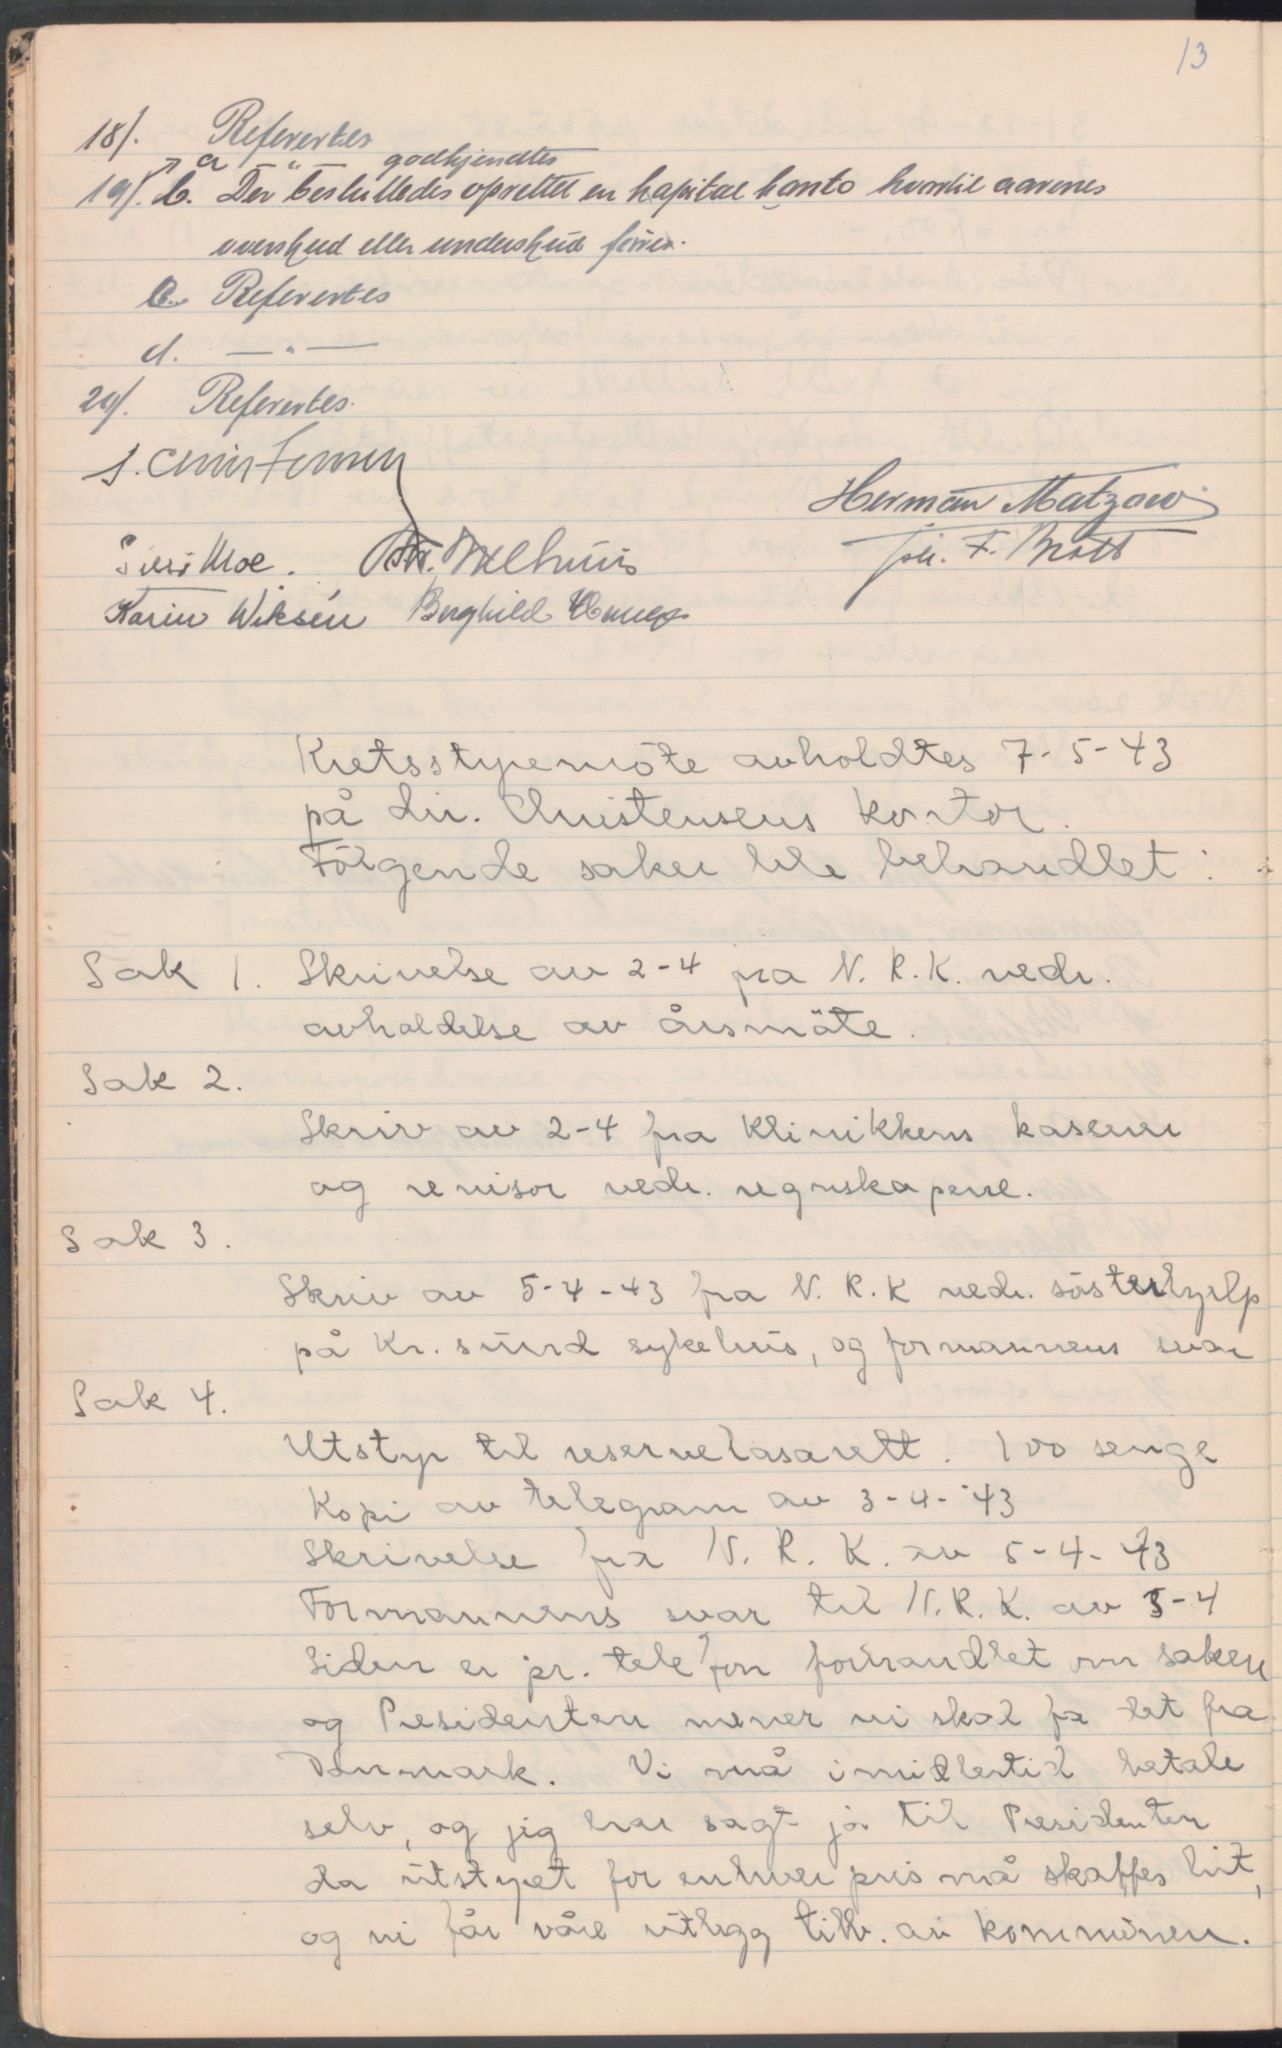 13
18/. Referertes
a — " — godkjendtes
19/. b. Der besluttedes oprettet en kapital konto hvortil aarenes
overskud eller underskud føres.
c. Referertes
d. — " —
20/. Referertes.
S. Christensen
Herman Matzow
Siri Moe. Chr. Melhuus
Joh. F. Bratt
Karin Wiksén Borghild
Kretsstyremöte avholdtes 7-5-43
på dir. Christensens kontor.
Følgende saker ble behandlet:
Sak 1. Skrivelse av 2-4 fra N. R. K. vedr.
avholdelse av årsmöte.
Sak 2.
Skriv av 2-4 fra klinikkens kaserer
og revisor vedr. regnskapene.
Sak 3.
Skriv av 5-4-43 fra N. R. K vedr. sösterhjelp
på Kr. sund sykehus, og formannens svar
Sak 4.
Utstyr til reservelasarett. 100 senge
Kopi av telegram av 3-4-43
Skrivelse fra N. R. K. av 5-4-43
Formannens svar til N. R. K. av 5-4
Siden er pr. telefon forhandlet om saken
og Presidenten mener vi skal få det fra
Danmark. Vi må imidlertid betale
selv, og jeg har sagt ja til Presidenten
da utstyret for enhver pris må skaffes hit,
og vi får våre utlegg tilb. av kommunen.